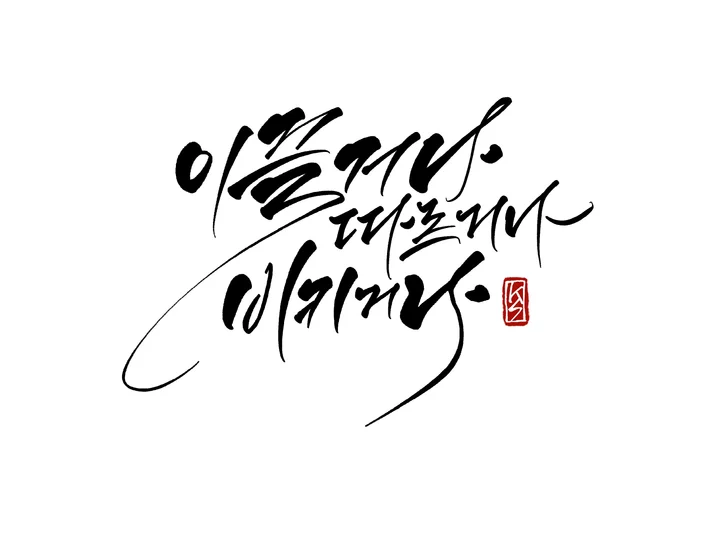 이끌거나
따르거나
비키거나